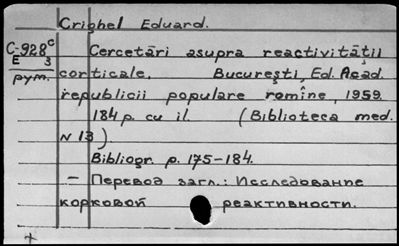 Crighel Eduard.
C-928c Cercetări asupra reactivităţii
E 3
рум. corticale. Bucureşti, Ed. Acad.
republicii populare romîne, 1959.
184 p. cu il. (Biblioteca med.
N 13)
Bibliogr. p. 175-184.
- Перевод загл.: Исследование
корковой реактивности.